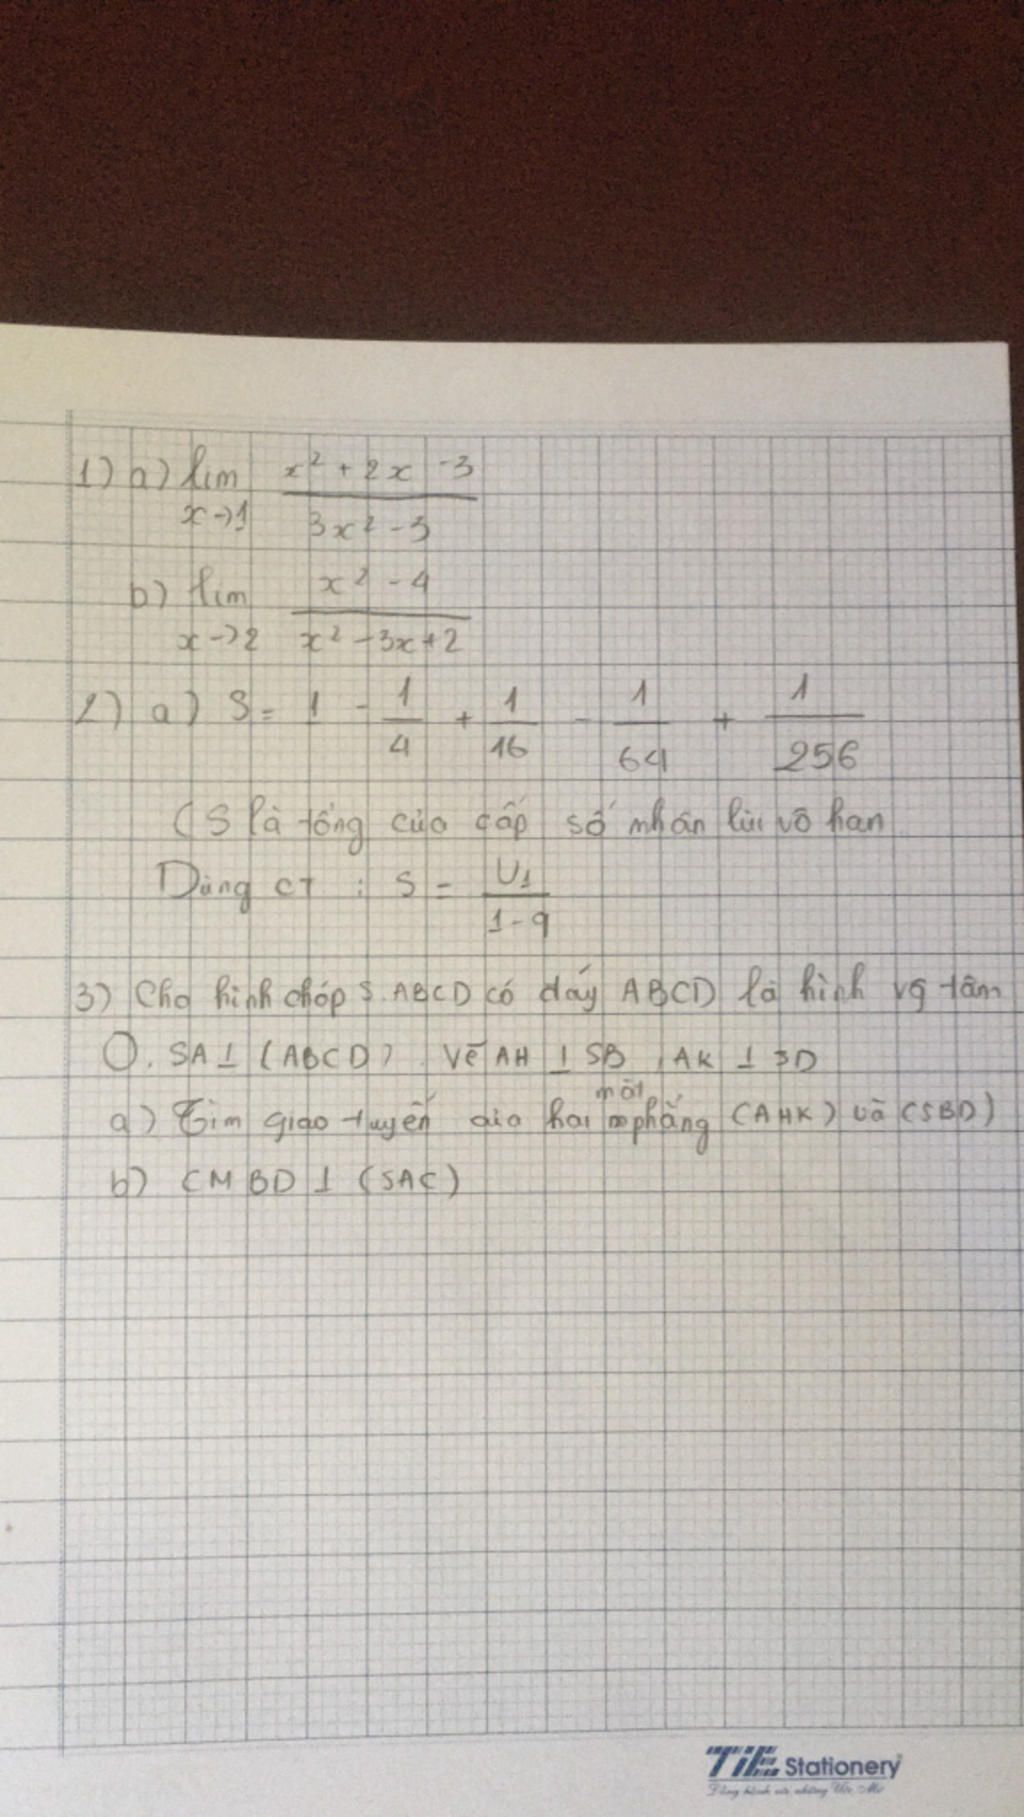 1) a) lim x² + 2x - 3
x→1 3x² - 3
b) lim x² - 4
x→2 x² - 3x + 2
2) a) S = 1 - 1/4 + 1/16 - 1/64 + 1/256
(S là tổng của cấp số nhân lùi vô hạn
Dùng CT : S = U₁/1-q
3) Cho hình chóp S.ABCD có đáy ABCD là hình vg tâm
O. SA⊥ (ABCD). Vẽ AH ⊥ SB, AK ⊥ SD
a) Tìm giao tuyến của hai mặt phẳng (AHK) và (SBD)
b) CM BD ⊥ (SAC)
TiE Stationery